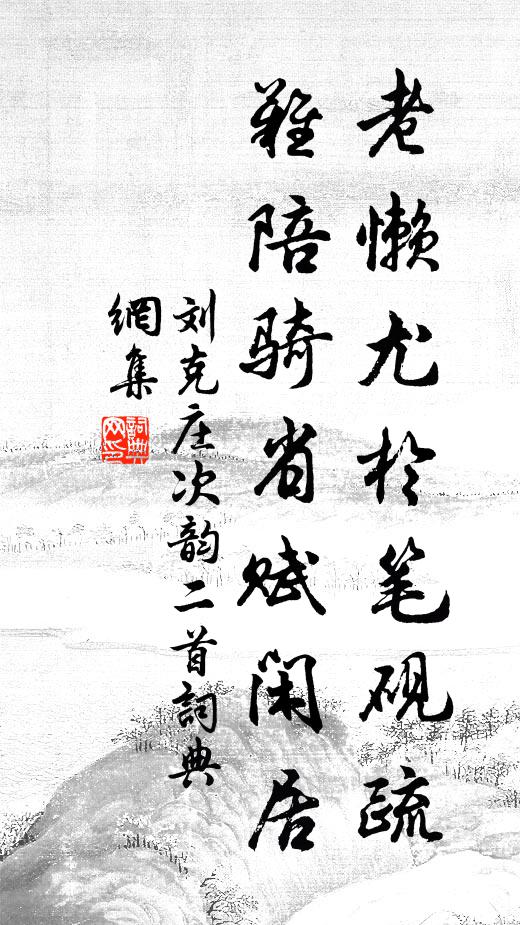 老懒尤於笔砚疏
难陪骑省赋闲居
刘克庄次韵二首詞典
網集
詞典網印